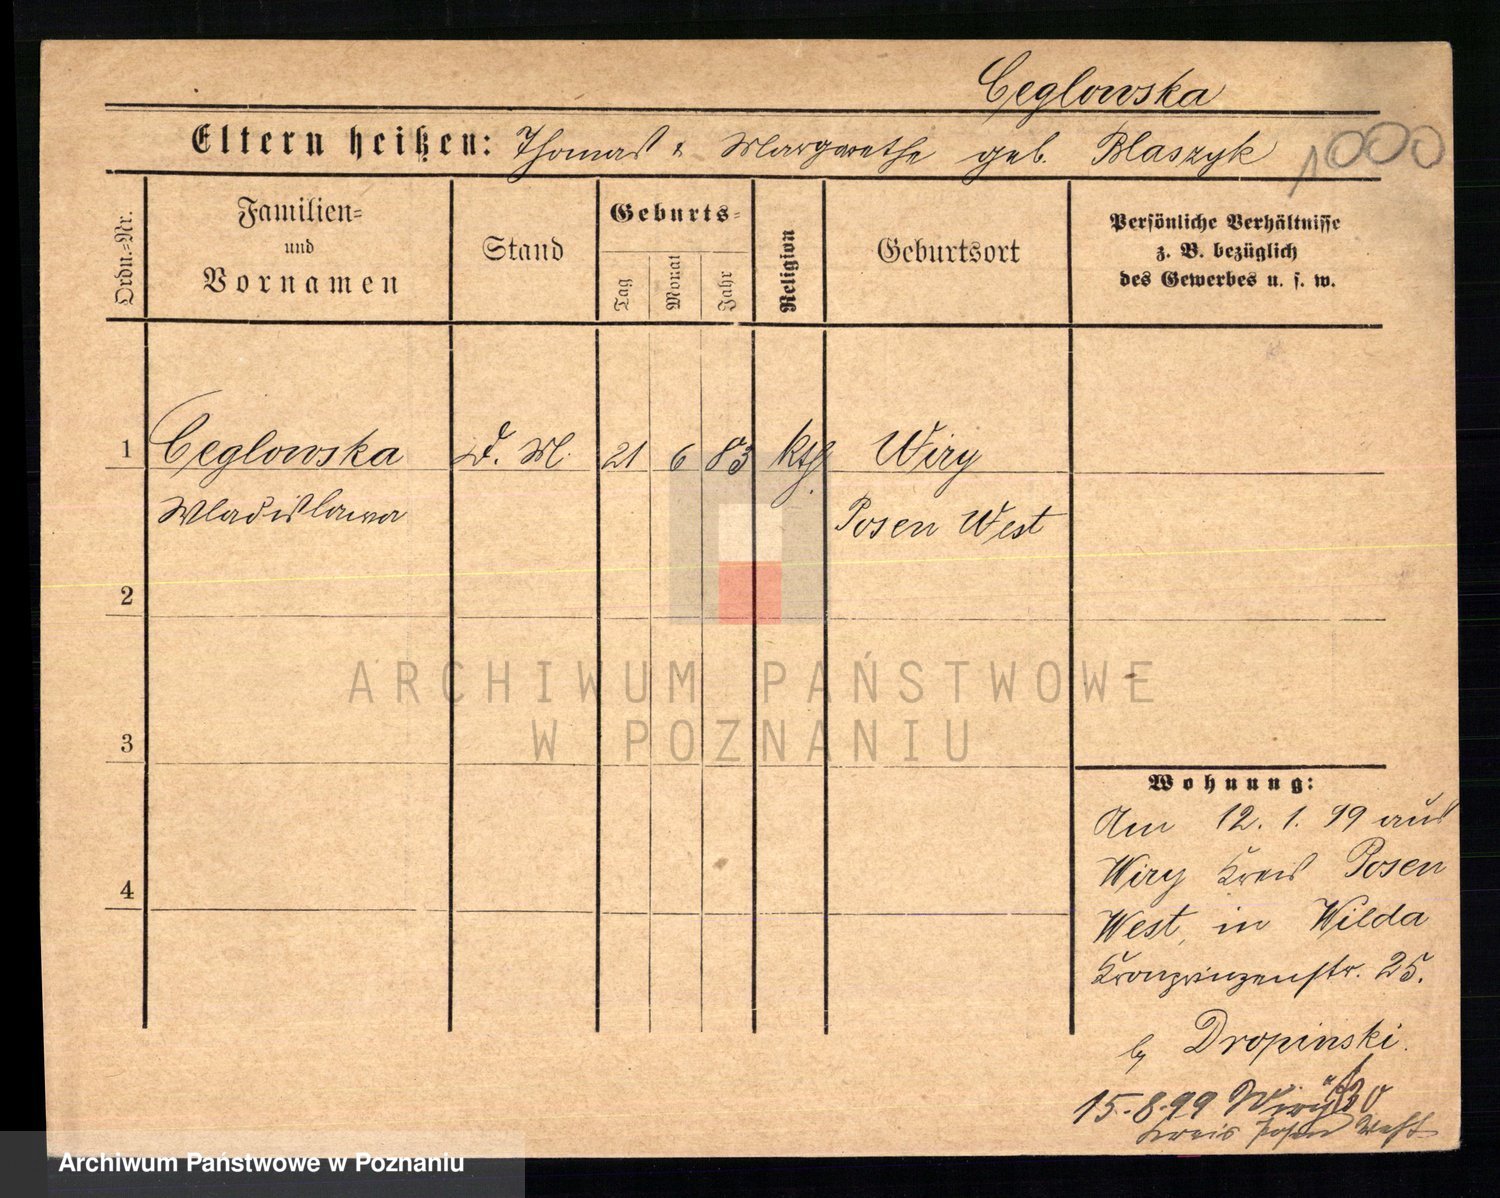 Ceglowska
Eltern heißen: Thomas & Margarethe geb. Blaszyk
1000
Ordn.=Nr.
Familien=
und
Vornamen
Stand
Geburts=
Tag
Monat
Jahr
Religion
Geburtsort
Persönliche Verhältnisse
z. B. bezüglich
des Gewerbes u. s. w.
1
Ceglowska
D. M.
21
6
83
kth.
Wiry
Wladislawa
Posen West
2
ARCHIWUM PAŃSTWOWE
W POZNANIU
3
4
Wohnung:
Am 12. 1. 99 aus
Wiry Kreis Posen
West, in Wilda
Kronprinzenstr. 25.
by Dropinski.
15.8.99 Wiry
Kreis Posen West
Archiwum Państwowe w Poznaniu